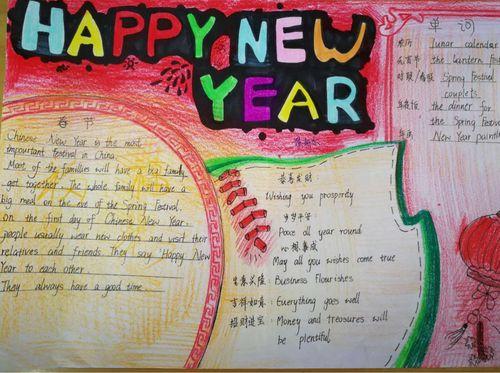 HAPPY NEW
YEAR
春 节
Chinese New Year is the most
impourtant festival in China.
Most of the families will have a big family
get together. The whole family will have a
big meal on the eve of the Spring Festival.
On the first day of Chinese New Year,
people usually wear new clothes and visit their
relatives and friends. They say "Happy New
Year to each other
They always have a good time
恭喜发财
Wishing you prosperity
岁岁平安
Peace all year round
心想事成
May all you wishes come true
生意兴隆: Business flourishes
吉祥如意: Everything goes well
招财进宝: Money and treasures will
be plentiful
单 词
农历 lunar calendar
元宵节 the Lantern Fest
对联/春联 Spring Festival
couplets
年夜饭 the dinner for
the Spring Fest
年画 New Year painti